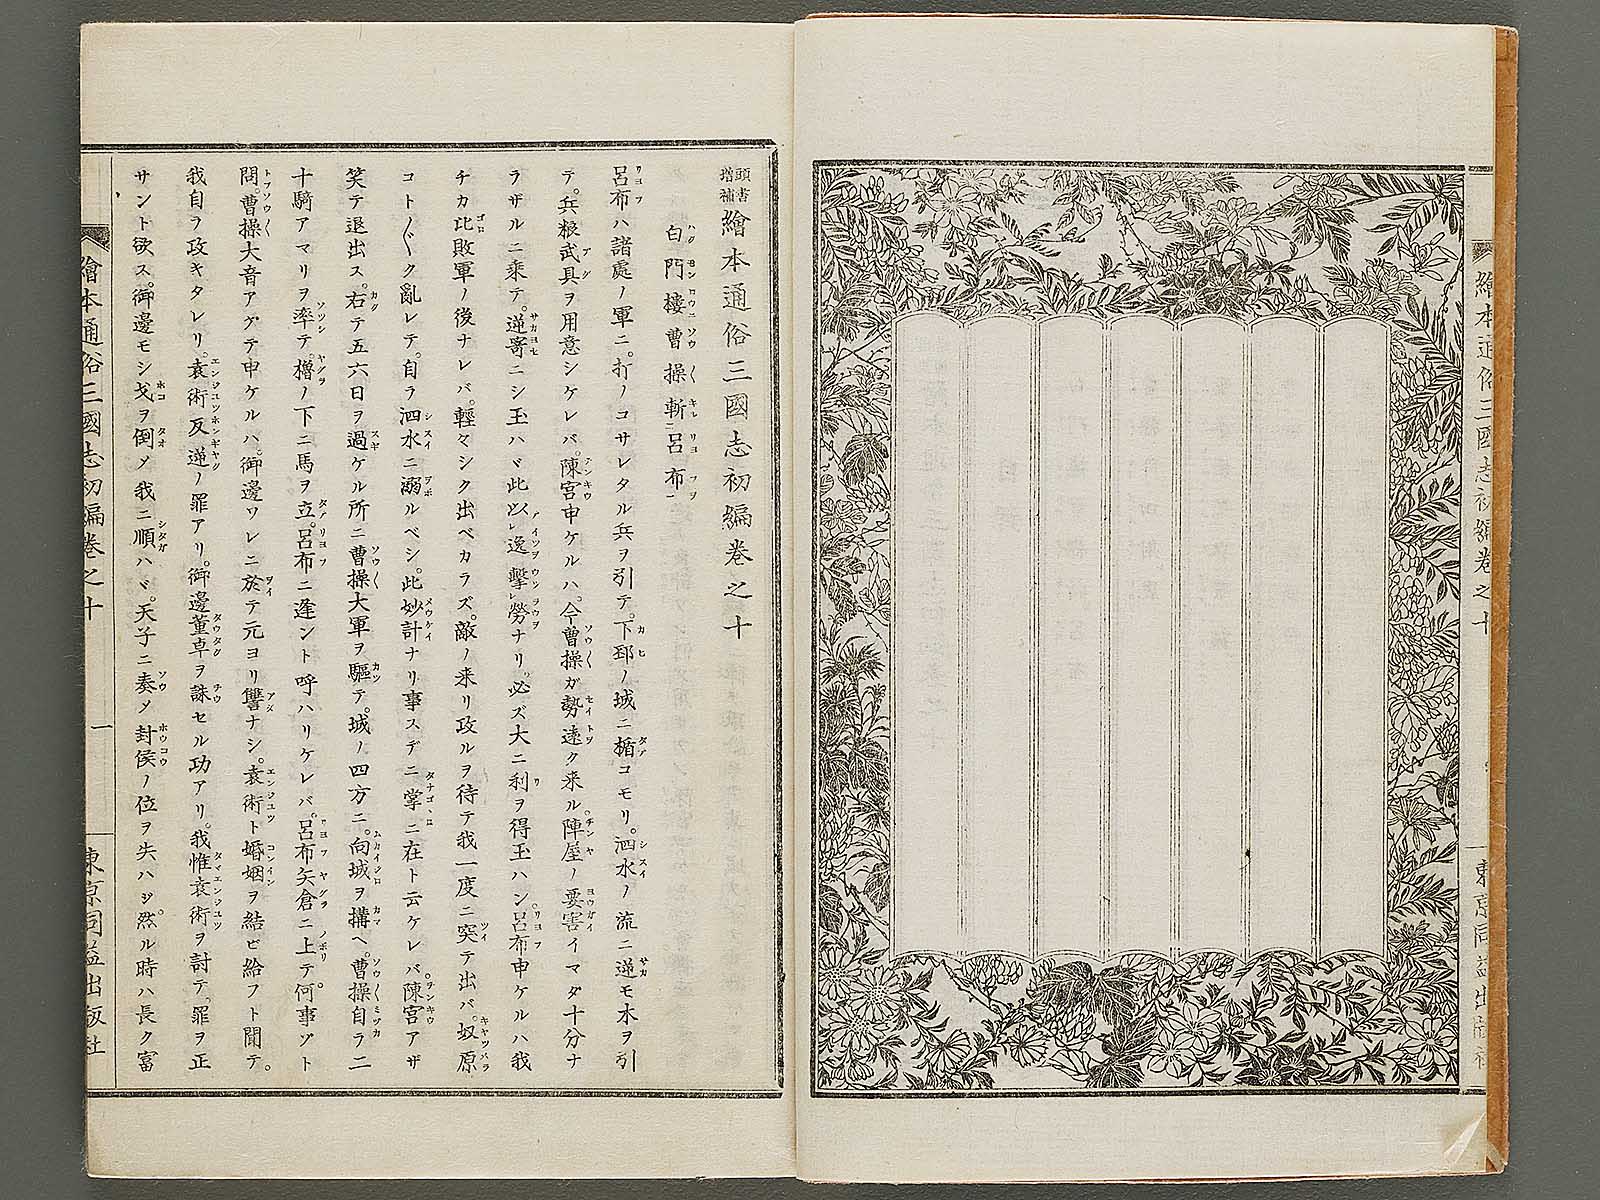 繪本通俗三國志初編卷之十
東京同益出版社
頭書増補繪本通俗三國志初編卷之十
白門樓曹操斬呂布
呂布ハ諸處ノ軍ニ。打ノコサレタル兵ヲ引テ。下邳ノ城ニ楯コモリ。泗水ノ流ニ逆モ木ヲ引
テ。兵粮武具ヲ用意シケレバ。陳宮申ケルハ。今曹操ガ勢遠ク来ル。陣屋ノ要害イマダ十分ナ
ラザルニ乘テ。逆寄ニシ玉ハヾ此以レ逸擊レ勞ナリ。必ズ大ニ利ヲ得玉ハン呂布申ケルハ我
チカ比敗軍ノ後ナレバ。輕々シク出ベカラズ。敵ノ来リ攻ルヲ待テ我一度ニ突テ出バ。坂原
コト〲ク亂レテ。自ラ泗水ニ溺ルベシ。此妙計ナリ事スデニ掌ニ在ト云ケレバ陳宮アザ
笑テ退出ス。右テ五六日ヲ過ケル所ニ曹操大軍ヲ驅テ。城ノ四方ニ。向城ヲ搆ヘ。曹操自ラ二
十騎アマリヲ率テ。櫓ノ下ニ馬ヲ立。呂布ニ逢ント呼ハリケレバ。呂布矢倉ニ上テ。何事ゾト
問。曹操大音アゲテ申ケルハ。御邊ワレニ於テ元ヨリ讐ナシ。袁術ト婚姻ヲ結ビ給フト聞テ。
我自ヲ攻キタレリ。袁術反逆ノ罪アリ。御邊董卓ヲ誅セル功アリ。我惟袁術ヲ討テ。罪ヲ正
サント欲ス。御邊モシ戈ヲ倒メ我ニ順ハヾ。天子ニ奏メ封侯ノ位ヲ失ハジ。然ル時ハ長ク富
繪本通俗三國志初編卷之十
一
東京同益出版社